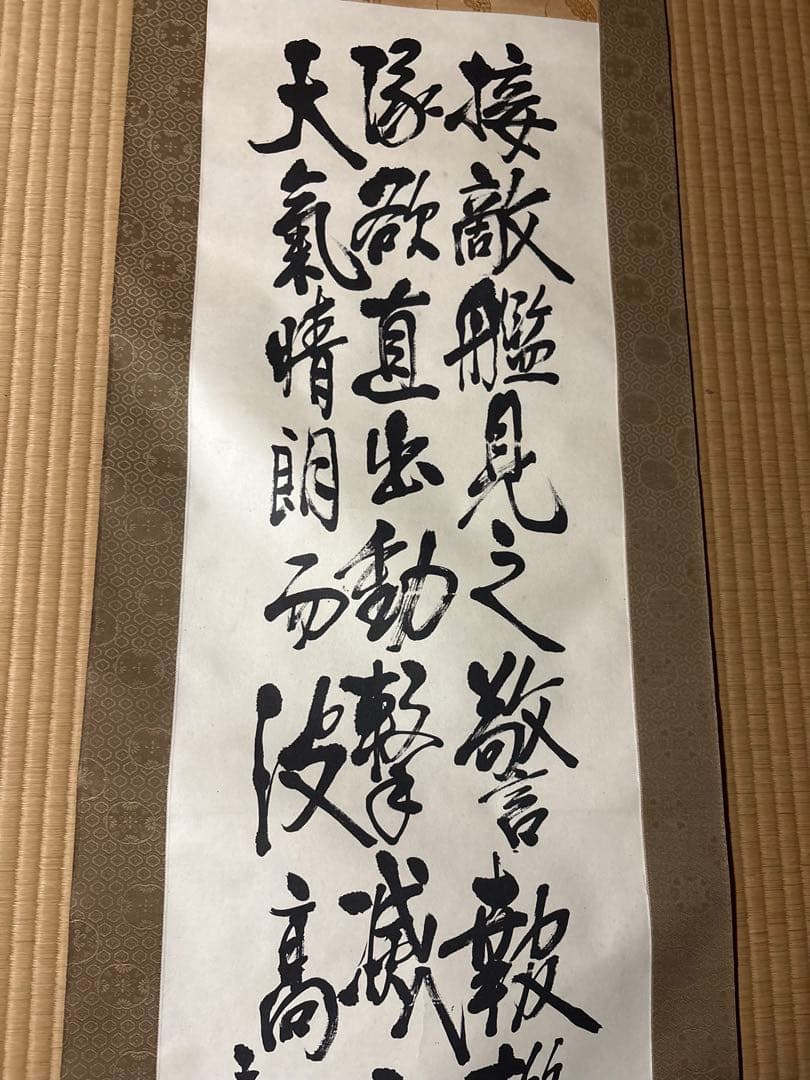 接敵艦見之警報
隊欲直出動撃滅
天氣晴朗而波高